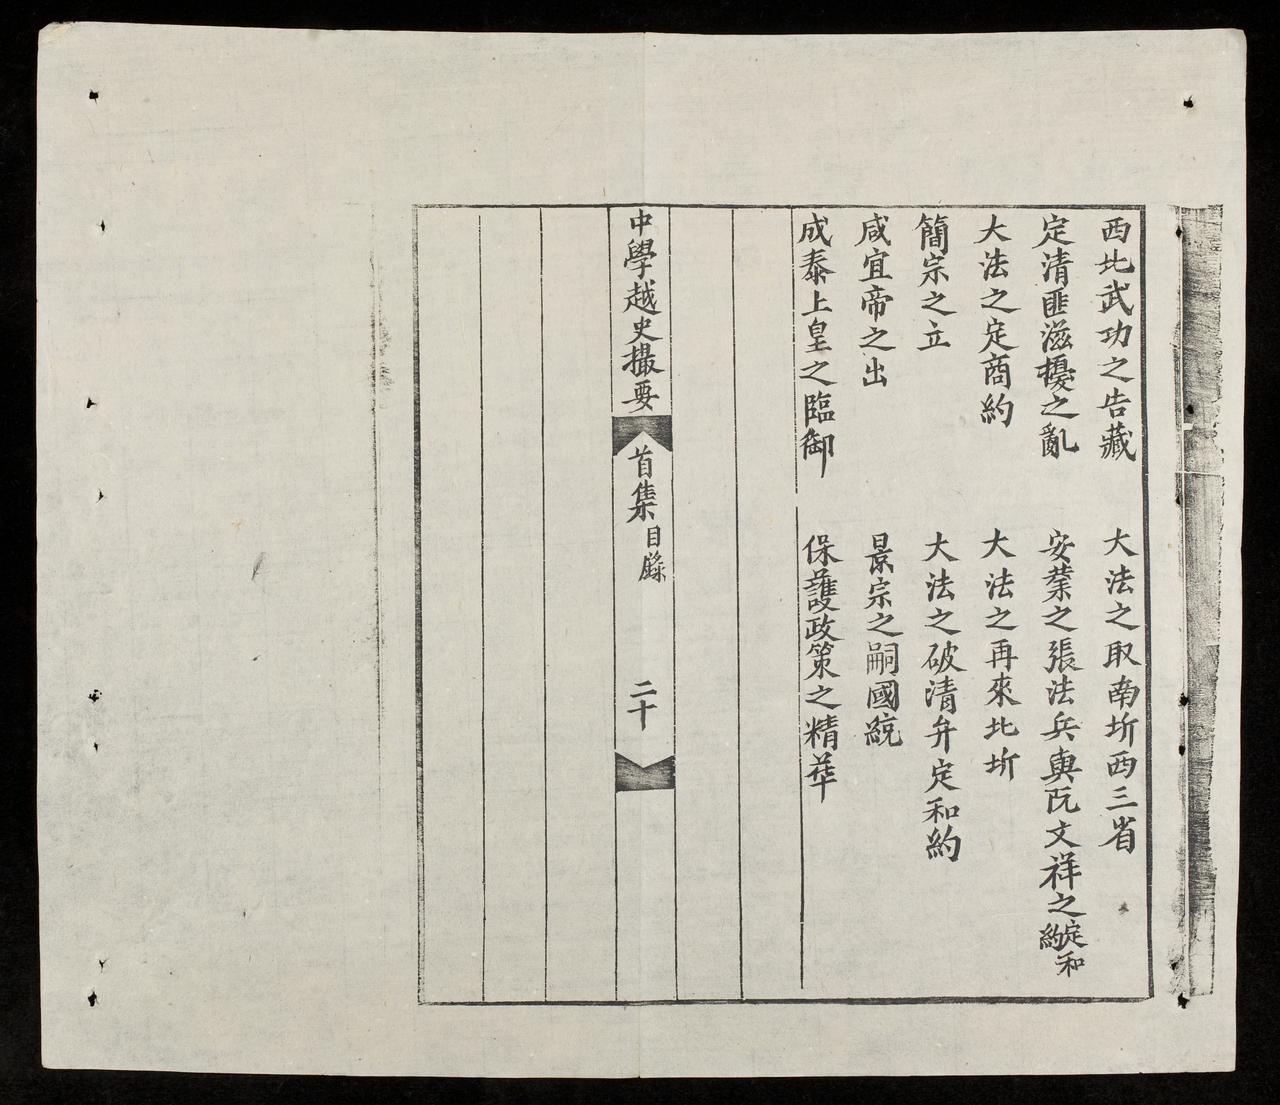 西北武功之告蕆 大法之取南圻西三省
定清匪滋擾之亂 安業之張法兵與阮文祥之定和約
大法之定商約 大法之再來北圻
簡宗之立 大法之破清弁定和約
咸宜帝之出 景宗之嗣國統
成泰上皇之臨御 保護政策之精華
中學越史撮要 首集 目錄 二十